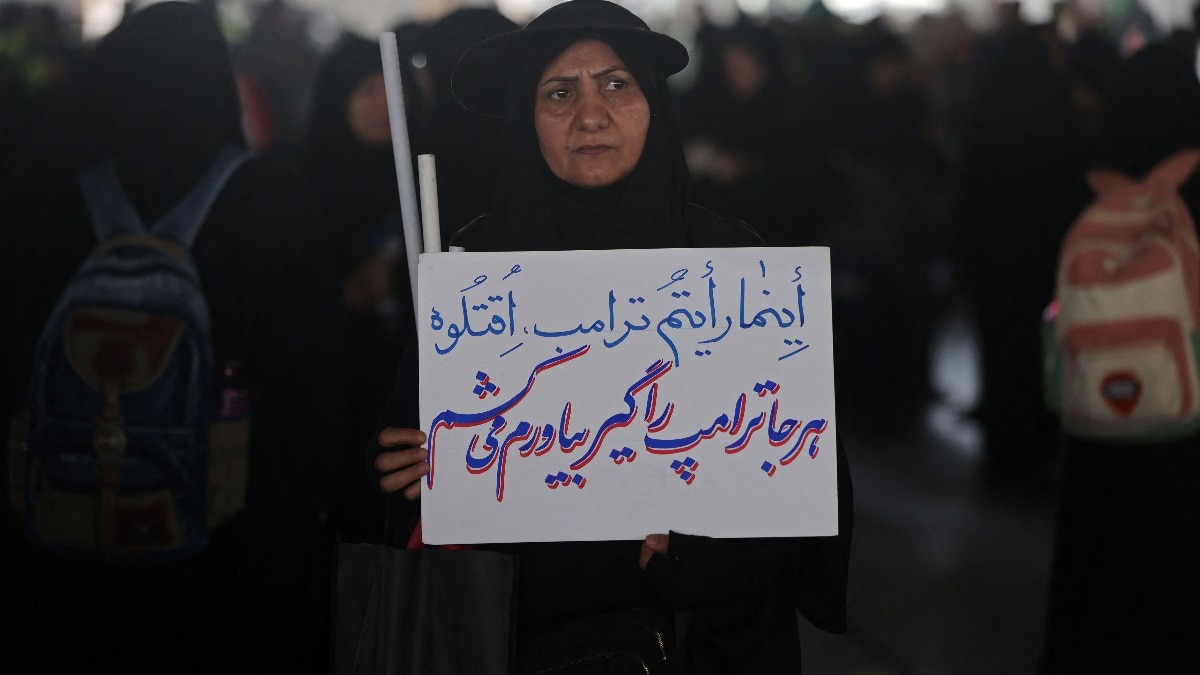 أَينَما رأيتُم ترامب، اُقتُلُوه
هر جا ترامپ را گیر بیاورم می‌کشم